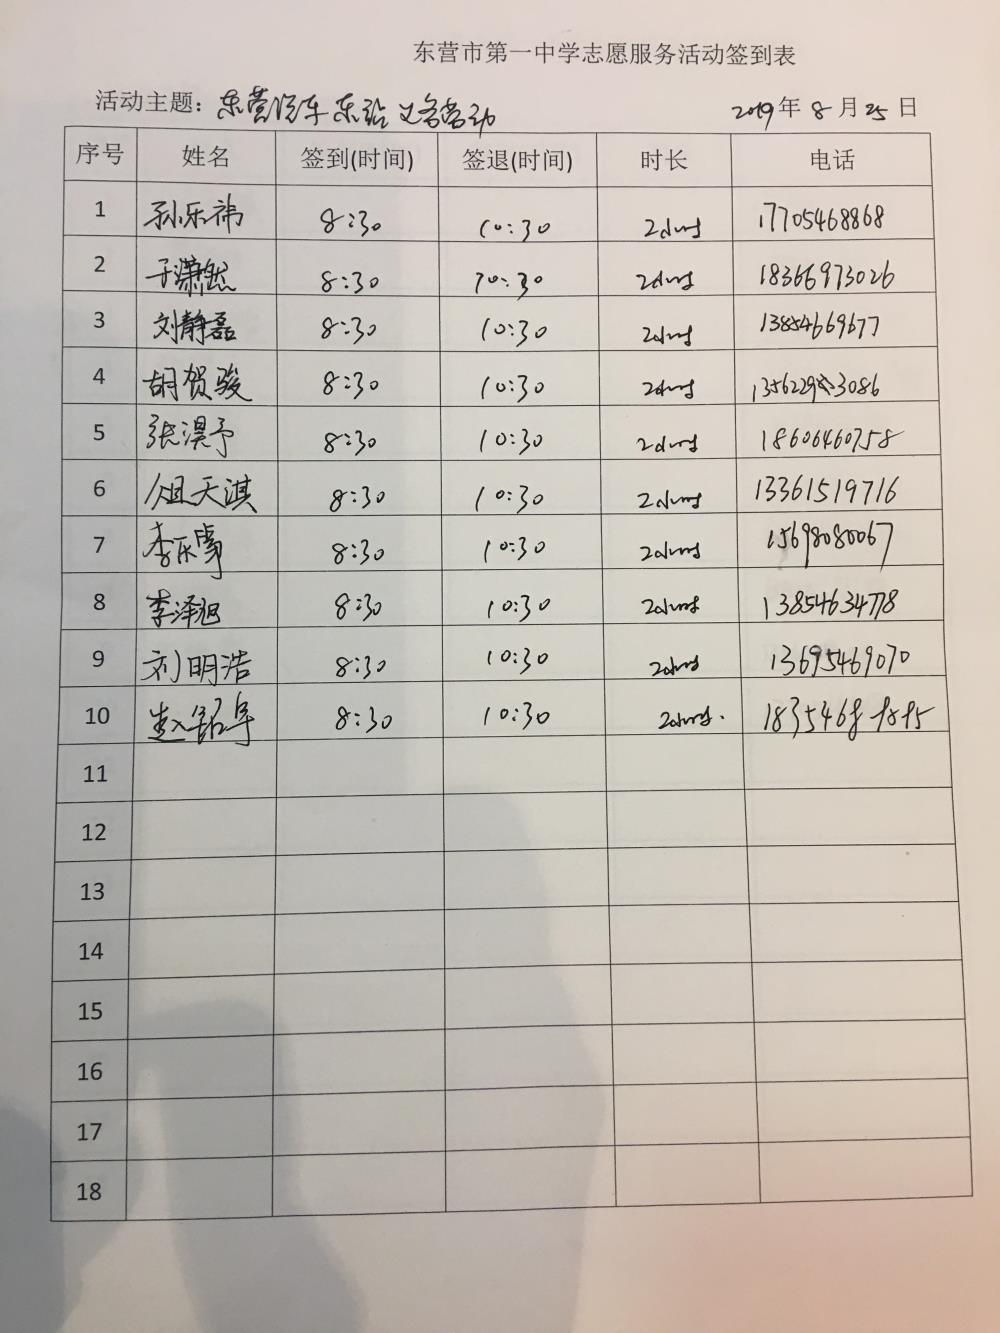 东营市第一中学志愿服务活动签到表
活动主题：东营汽车东站义务劳动 2019年8月25日
序号 姓名 签到(时间) 签退(时间) 时长 电话
1 孙乐祎 8:30 10:30 17705468868
2 于潇然 8:30 10:30 18366973026
3 刘静磊 8:30 10:30 13854669677
4 胡贺骏 8:30 10:30
5 张淏予 8:30 10:30 18606460758
6 天淇 8:30 10:30 13361519716
7 李乐 8:30 10:30 15698080067
8 李泽旭 8:30 10:30 13854634778
9 刘明浩 8:30 10:30 13695469070
10 赵 8:30 10:30
11
12
13
14
15
16
17
18